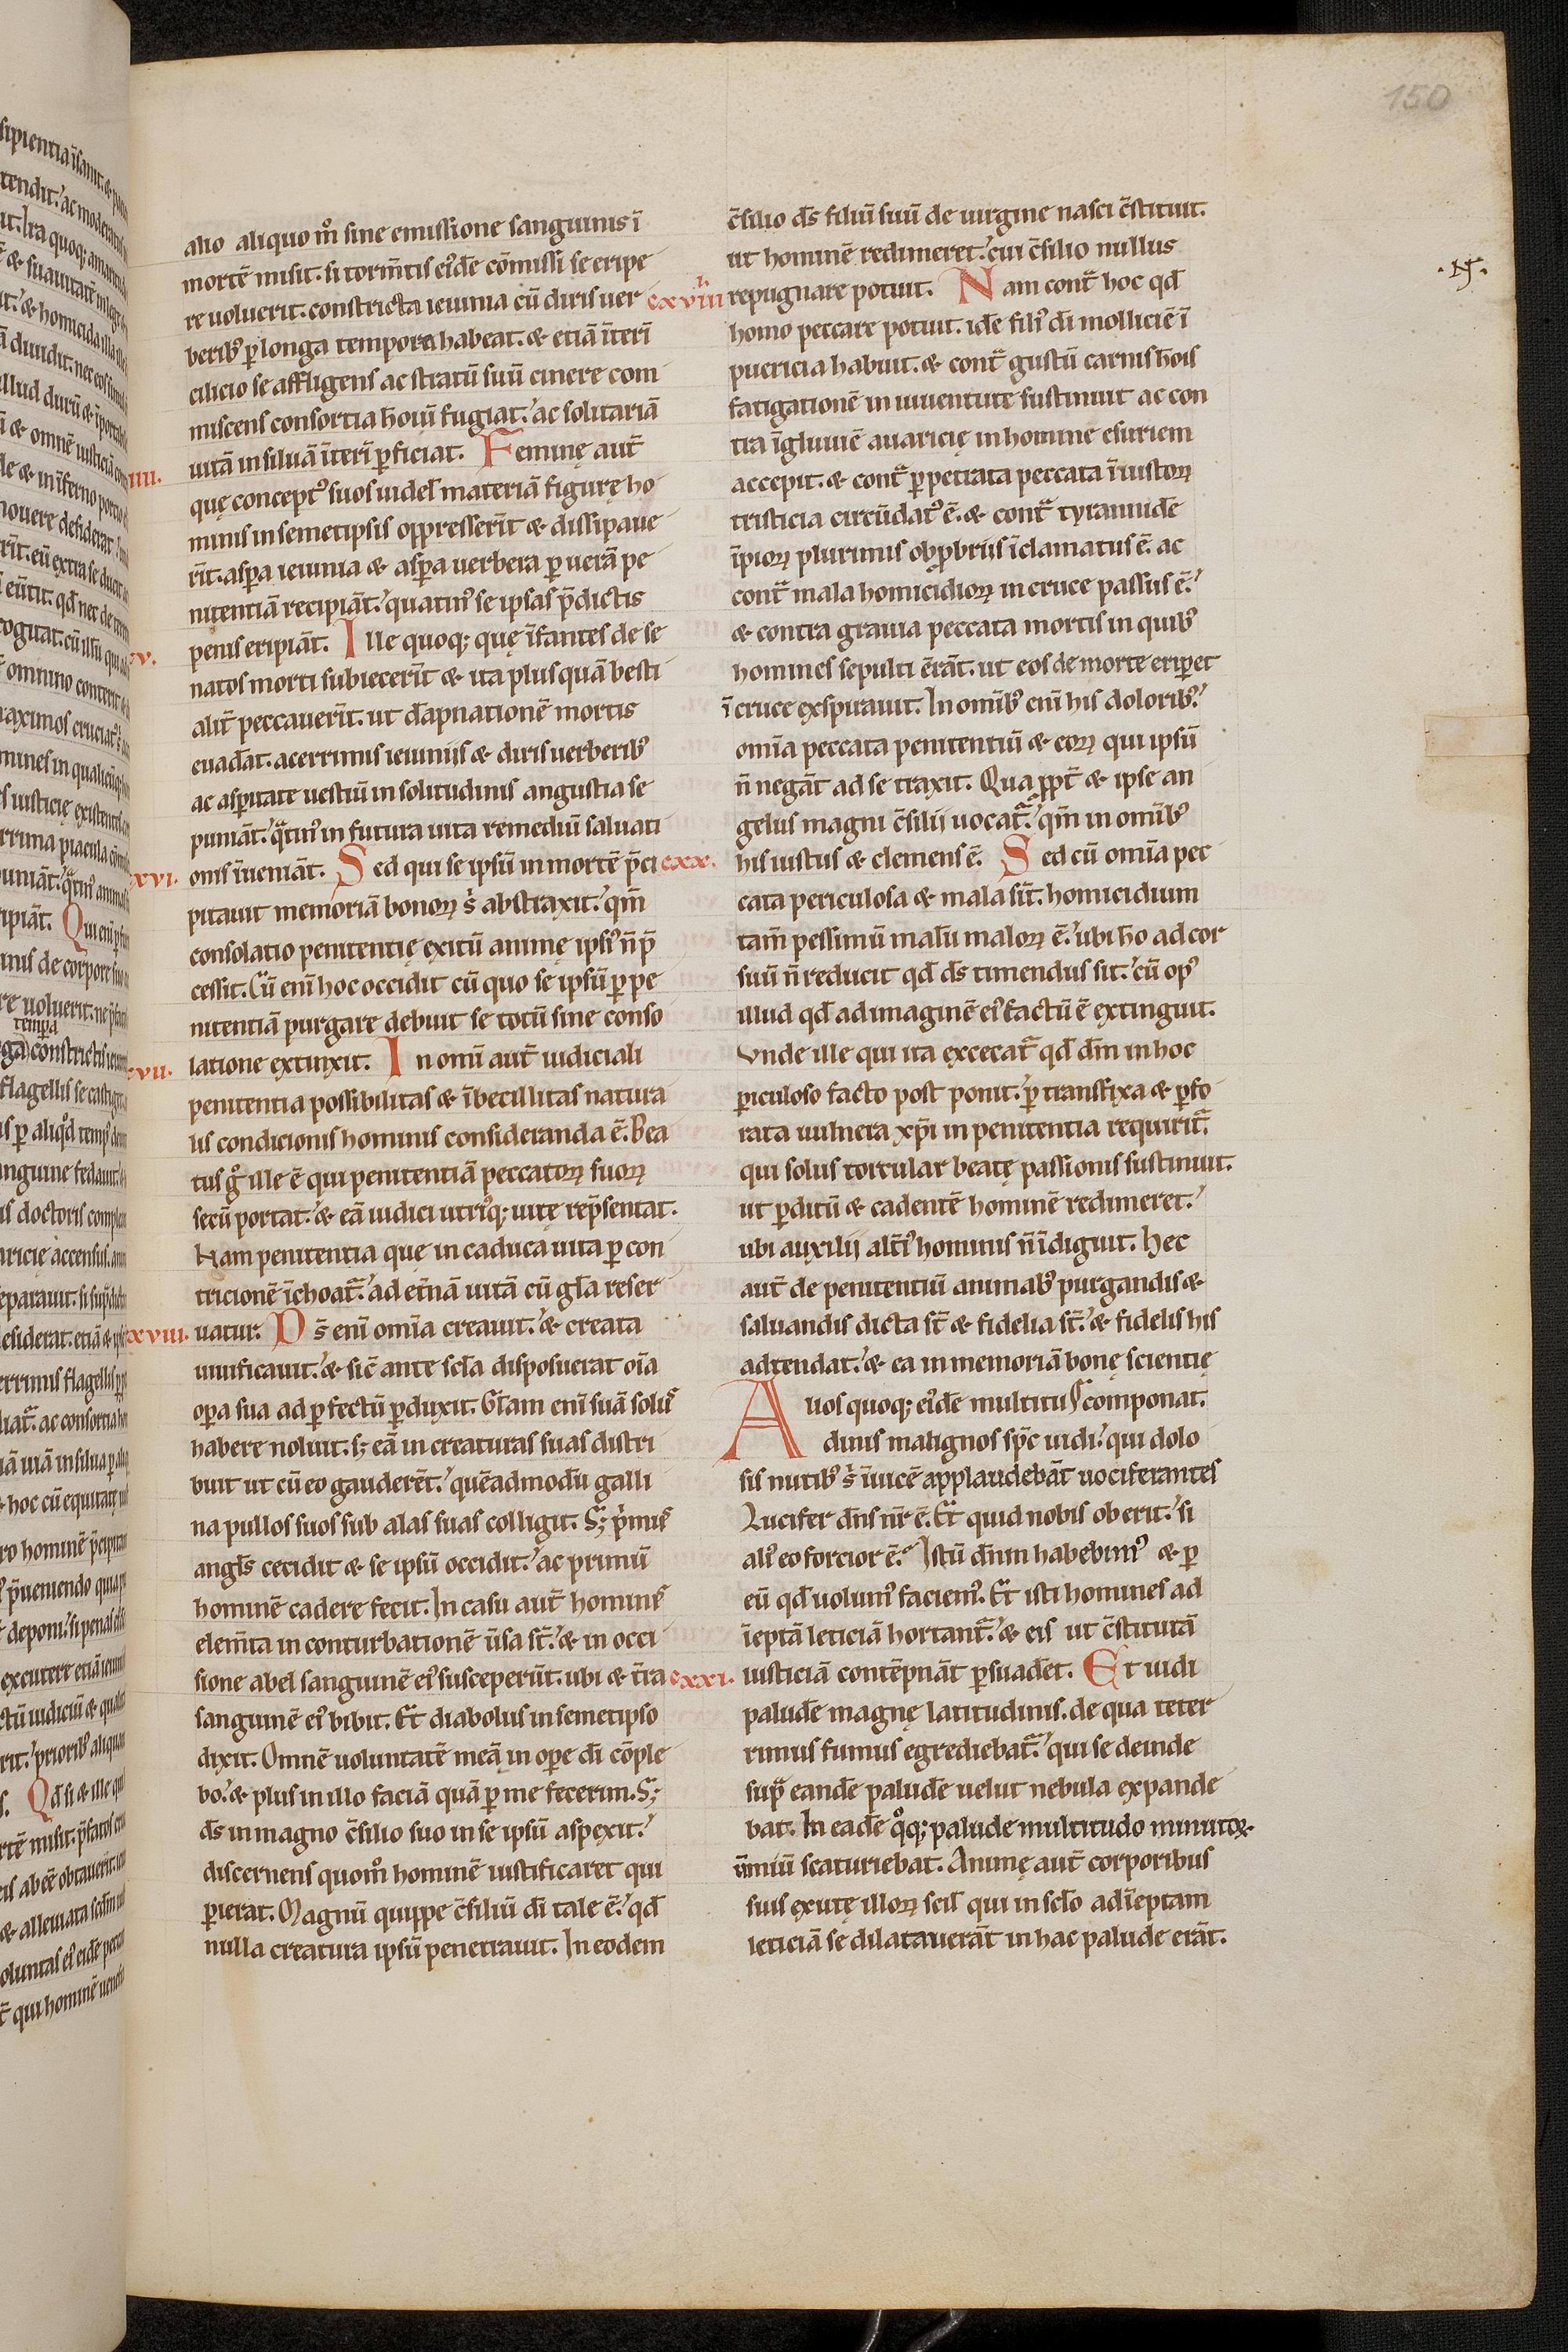 150
alio aliquo m̊ sine emissione sanguinis ī
mortē misit. si torm̄tis ei᷒dē cōmissi se eripe
re uoluerit. constricta ieiunia cū diris uer
berib᷒ ꝑ longa tempora habeat. & etiā īterī
cilicio se affligens ac stratū suū cinere com
miscens consortia hoīuī fugiat.' ac solitariā
uitā in siluā īterī ꝑficiat. Feminę aut̄
quę concept᷒ suos uidel᷒ materiā figurę ho
minis in semetipsis oppresserīt & dissipaue
rīt. aspa ieiunia & aspa uerbera ꝑ uerā pe
nitentiā recipiāt.' quatin᷒ se ipsas p̄dictis
penis eripiāt. Ille quoq; quę īfantes de se
natos morti subiecerīt & ita plus quā besti
alit̄ peccauerīt. ut dāpnationē mortis
euadāt. acerrimis ieiuniis & diris uerberib᷒
ac asꝑitate uestiū in solitudinis angustia se
puniāt.' q̄tin᷒ in futura uita remediū saluati
cxvi. onis īueniāt. Sed qui se ipsū in mortē p̄ci
pitauit memoriā bonoꝝ s̄ abstraxit.' qm̄
consolatio penitentię exitū animę ipsi᷒ n̄ p̄
cessit. Cū enī hoc occidit cū quo se ipsū ꝑ pe
nitentiā purgare debuit se totū sine conso
latione extinxit. In omī aut̄ iudiciali
penitentia possibilitas & ībecillitas natura
lis condicionis hominis consideranda ē. Bea
tus g̊ ille ē qui penitentiā peccatoꝝ suoꝝ
secū portat.' & eā iudici utri᷒q; uitę rep̄sentat.
Nam penitentia quę in caduca uita ꝑ con
tricionē īchoat̄.' ad et̄nā uitā cū gl̄a reser
xviii. uatur. Ds̄ enī om̄ia creauit.' & creata
uiuificauit.' & sic̄ ante scl̄a disposuerat oīa
oꝑa sua ad ꝑfectū ꝑduxit. Gl̄am enī suā solus
habere noluit. s; eā in creaturas suas distri
buit ut cū eo gauderēt.' quēadmodū galli
na pullos suos sub alas suas colligit. S; p̄mus
angl̄s cecidit & se ipsū occidit.' ac primū
hominē cadere fecit. In casu aut̄ hominis
elem̄ta in conturbationē ūsa st̄.' & in occi
sione abel sanguinē ei᷒ susceperūt. ubi & t̄ra
sanguinē ei᷒ bibit. Et diabolus in semetipso
dixit. Omnē uoluntatē meā in oꝑe dī cōple
bo.' & plus in illo faciā quā ꝑ me fecerim. S;
ds̄ in magno c̄silio suo in se ipsū aspexit.'
discernens quom̊ hominē iustificaret qui
ꝑierat. Magnū quippe c̄siliū dī tale ē.' qd̄
nulla creatura ipsū penetrauit. In eodem
c̄silio ds̄ filiū suū de uirgine nasci c̄stituit.
ut hominē redimeret.' cui c̄silio nullus
cxviiii repugnare potuit. Nam cont̄ hoc qd̄
homo peccare potuit. idē fili᷒ dī molliciē ī
puericia habuit. & cont̄ gustū carnis hōis
fatigationē in iuuentute sustinuit ac con
tra īgluuiē auaricię in homine esuriem
accepit. & cont̄ ꝑpetrata peccata īiustoꝝ
tristicia circūdat᷒ ē. & cont̄ tyrannidē
īpioꝝ plurimis obꝓbriis īclamatus ē. ac
cont̄ mala homicidioꝝ in cruce passus ē.'
& contra grauia peccata mortis in quib᷒
homines sepulti erāt. ut eos de morte eriꝑet
ī cruce exspirauit. In omīb᷒ enī his dolorib᷒.'
om̄ia peccata penitentiū & eoꝝ qui ipsū
n̄ negāt ad se traxit. Qua ꝓpt̄ & ipse an
gelus magni c̄silii uocat̄.' qm̄ in omīb᷒
cxx. his iustus & clemens ē. Sed cū om̄ia pec
cata periculosa & mala sīt. homicidium
tam̄ pessimū malū maloꝝ ē.' ubi hō ad cor
suū n̄ reducit qd̄ ds̄ timendus sit.' cū op᷒
illud qd̄ ad imaginē ei᷒ factū ē extinguit.
Vnde ille qui ita excecat̄ qd̄ dm̄ in hoc
ꝑiculoso facto post ponit.' ꝑ transfixa & ꝑfo
rata uulnera xp̄i in penitentia requirit̄
qui solus torcular beatę passionis sustinuit.
ut ꝑditū & cadentē hominē redimeret.'
ubi auxilii alt̄i᷒ hominis n̄ īdiguit. Hec
aut̄ de penitentiū animab᷒ purgandis &
saluandis dicta st̄ & fidelia st̄.' & fidelis his
adtendat.' & ea in memoriā bonę scientię
A uos quoq; ei᷒dē multitu componat.
dinis malignos sp̄c uidi.' qui dolo
sis nutib᷒ s̄ īuicē applaudebāt uociferantes
Lucifer dn̄s nr̄ ē. Et quid nobis oberit.' si
ali᷒ eo forcior ē.' Istū dn̄m habebim᷒ & ꝑ
eū qd̄ uolum᷒ faciem᷒. Et isti homines ad
īeptā leticiā hortant̄.' & eis ut c̄stitutā
cxxi. iusticiā contēpnāt ꝑsuadēt. Et uidi
paludē magnę latitudinis. de qua teter
rimus fumus egrediebat̄.' qui se deinde
sup̄ eandē paludē uelut nebula expande
bat. In eadē q̊q; palude multitudo minutoꝝ
ūmiū scaturiebat. Animę aut̄ corporibus
suis exutę illoꝝ scil᷒ qui in sclo ad īeptam
leticiā se dilatauerāt in hac palude erāt.